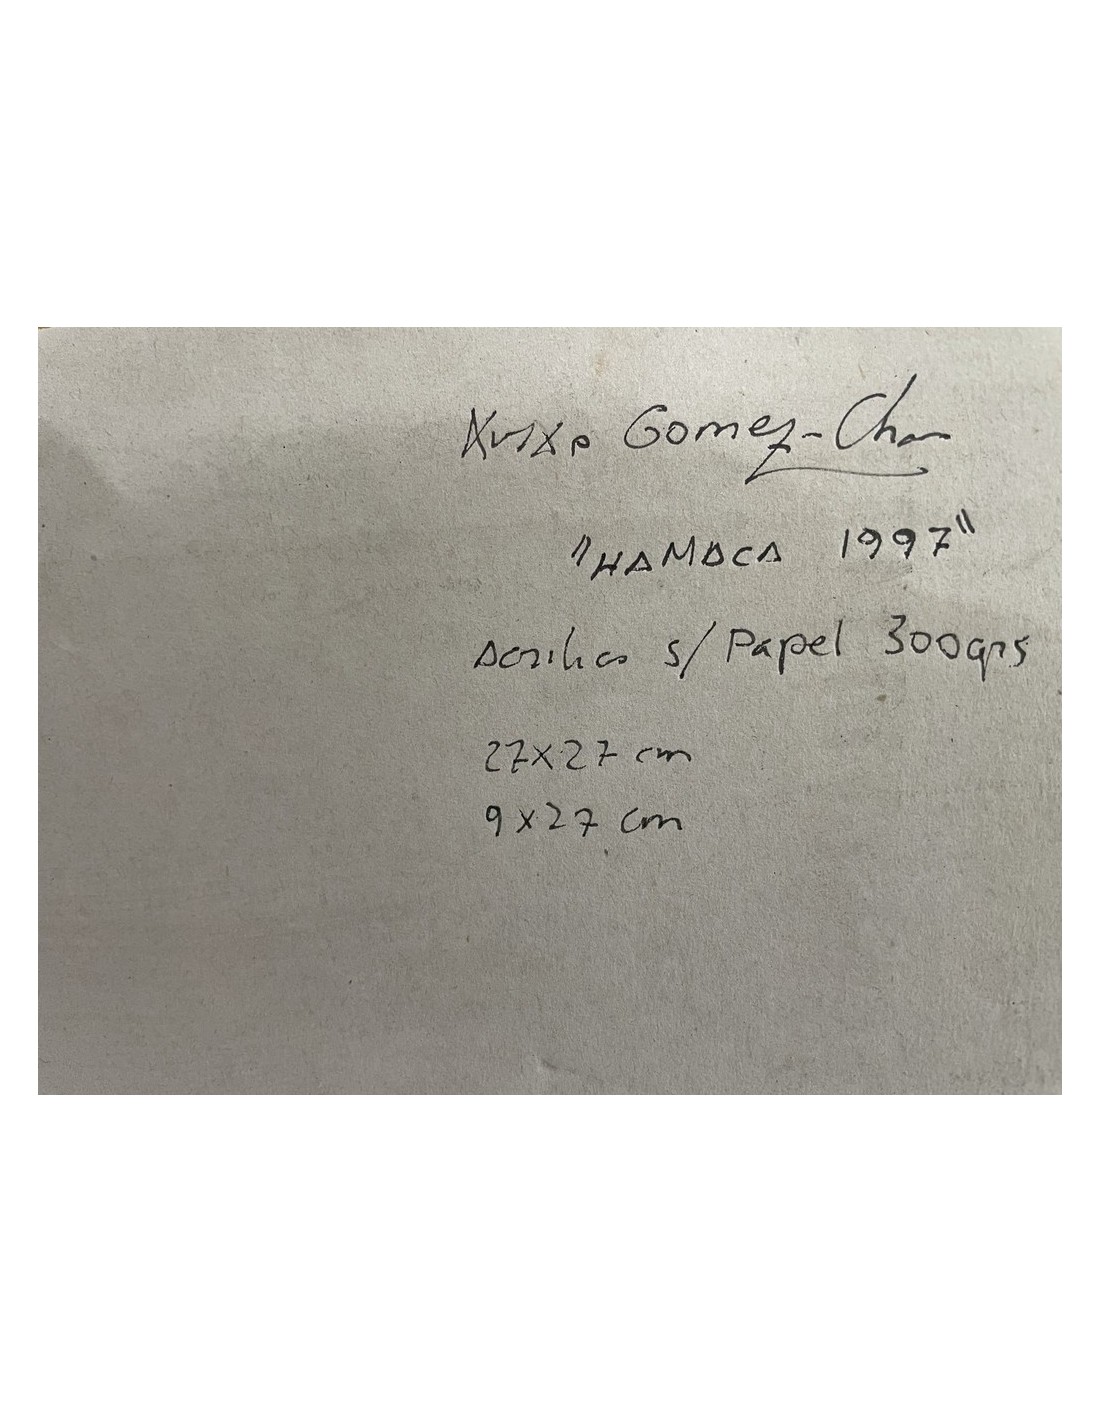 Gomez-Chan
"HAMACA 1997"
Acrilico s/ Papel 300grs
27x27 cm
9x27 cm